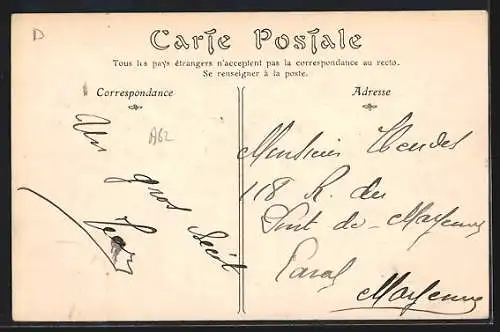 D
Carte Postale
Tous les pays étrangers n'acceptent pas la correspondance au recto.
Se renseigner à la poste.
Correspondance
A62
Un gros
Adresse
Monsieur Hendes
118 R. du
Pont de Mayenne
Laval
Mayenne